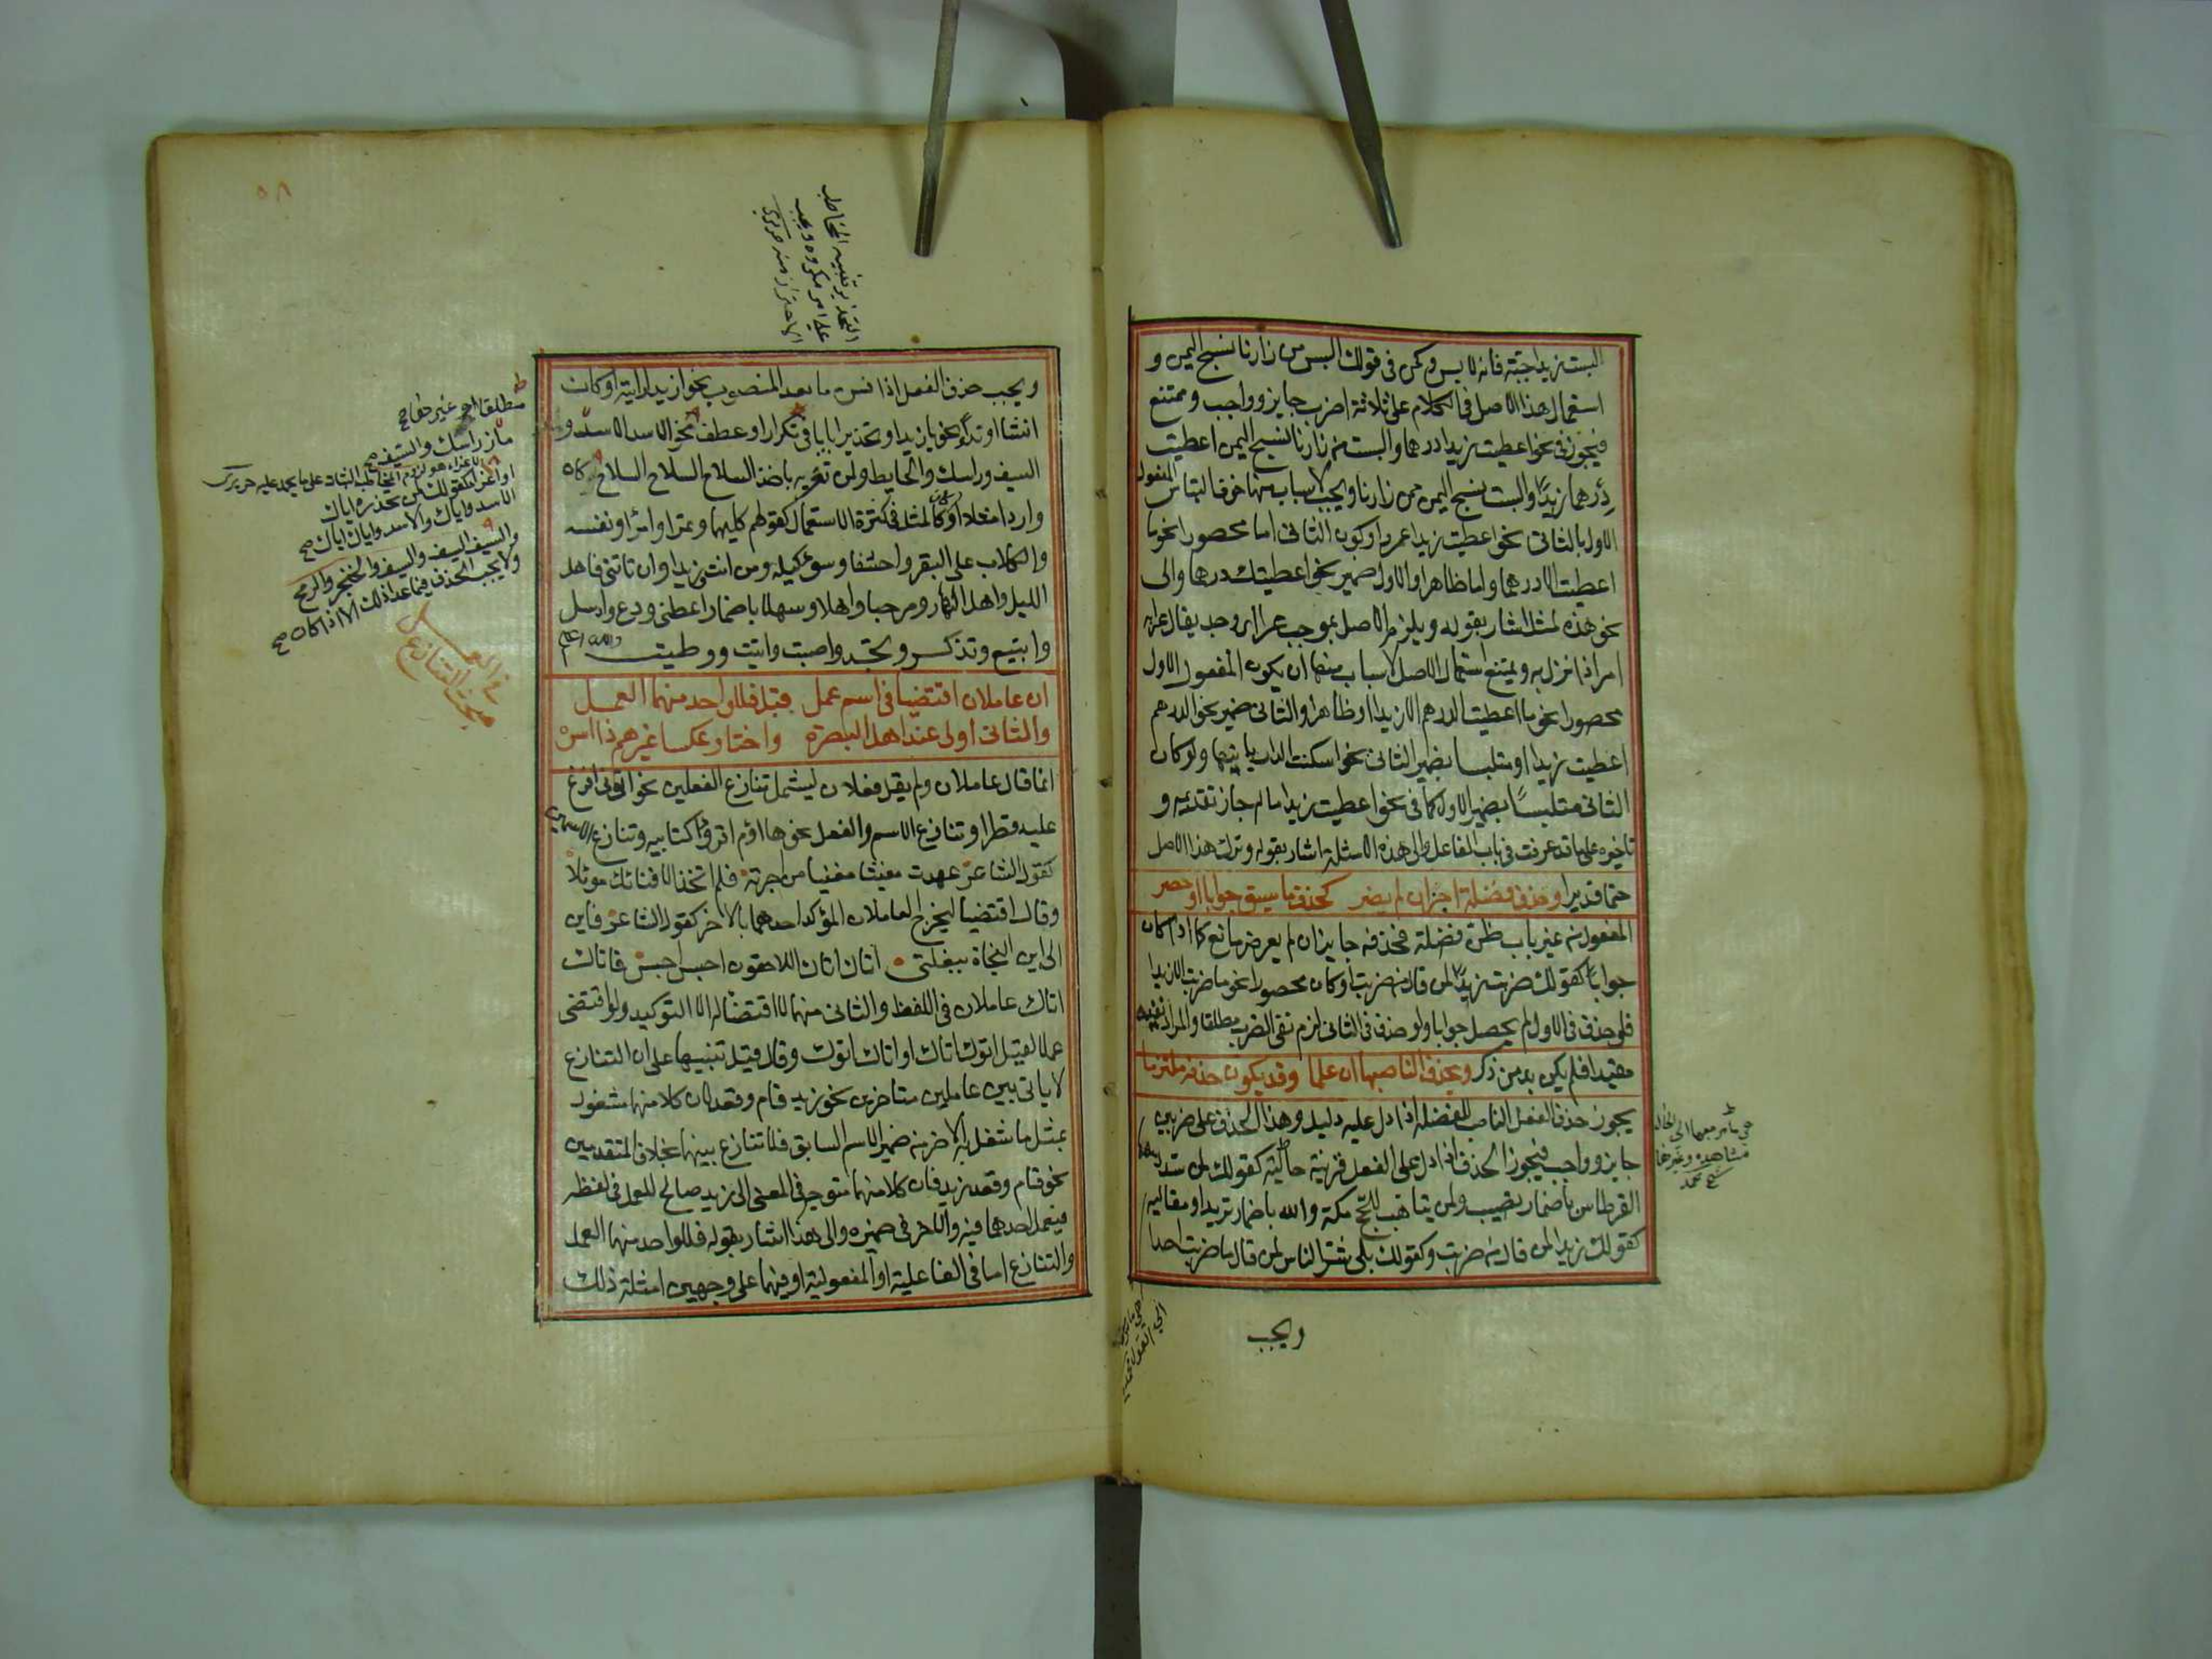 البست زيدا جبّة فانه لابس وكمن فى قولك البس من زارنا نسج اليمن و
استعمال هذا الاصل فى الكلام على ثلاثة اضرب جايز وواجب وممتنع
فيجوز فى نحو اعطيت زيدا درهما والبست من زارنا نسج اليمن اعطيت
درهما زيدًا والبست نسج اليمن من زارنا ويجب لاسباب منها خوف التباس المفعول
الاول بالثانى نحو اعطيت زيدا عمروا وكون الثانى اما محصورا نحو ما
اعطيت الا درهما واما ظاهرا والاول ضمير نحو اعطيتك درهما والى
نحو هذه المثل اشار بقوله ويلزم الاصل بموجب عرا اى وجد يقال عرا به
امر اذا نزل به ويمتنع استعمال الاصل لاسباب منها ان يكون المفعول الاول
محصورا نحو ما اعطيت الدرهم الا زيدا او ظاهرا والثانى ضمير نحو الدرهم
اعطيت زيدا او متلبسا بضمير الثانى نحو اسكنت الدار بانيها ولو كان
الثانى متلبسًا بضمير الاول كما فى نحو اعطيت زيدا ماله جاز تقديمه و
تاخيره على ما قد عرفت فى باب الفاعل والى هذه الامثلة اشار بقوله وترك هذا الاصل
حتما قد يرا وحذف فضلة اجز ان لم يضر كحذف ما سيق جوابا او حصر
المفعول من غير باب ظن فضلة فحذفه جايز ان لم يعرض مانع كما اذا كان
جوابا كقولك ضربت زيدًا لمن قال من ضربت او كان محصورا نحو ما ضربت الا زيدا
فلو حذف فى الاول لم يحصل جوابا ولو حذف فى الثانى لزم نفى الضرب مطلقا والمراد نفيه
مقيدا فلم يكن بد من ذكر ويحذف الناصبها ان علما وقد يكون حذفه ملتزما
يجوز حذف الفعل الناصب للفضلة اذا دل عليه دليل وهذا الحذف على ضربين
جايز وواجب فيجوز الحذف اذا دل على الفعل قرينة حالية كقولك لمن سدد سهما
القرطاس باضمار تصيب ولمن يتاهب للحج مكة والله باضمار تريد او مقالية
كقولك زيدا لمن قال من ضربت وكقولك بلى شر الناس لمن قال ما ضربت احدا
ويجب
ويجب حذف الفعل اذا فسره ما بعد المنصوب نحو ازيدا رايته او كان
انشا او نداءً نحو يا زيد او تحذيرا بايا فى تكرار او عطف نحو الاسد الاسد و
السيف وراسك والحايط ولمن تغريه باخذ السلاح السلاح السلاح او كان
واردا مثلا او كالمثل فى كثرة الاستعمال كقولهم كليهما وتمرا وامرا ونفسه
والكلاب على البقر واحشفا وسوء كيلة ومن انت زيدا وان تاتنى فاهل
الليل واهل النهار ومرحبا واهلا وسهلا باضمار اعطنى ودع وارسل
وابتيع وتذكر وتجد واصبت واتيت ووطيت والله اعلم
ان عاملان اقتضيا فى اسم عمل قبل فللواحد منهما العمل
والثانى اولى عند اهل البصرة واختار عكسا غيرهم ذا اسرة
انما قال عاملان ولم يقل فعلان ليشمل تنازع الفعلين نحو اتونى افرغ
عليه قطرا وتنازع الاسم والفعل نحو هاؤم اقروا كتابيه وتنازع الاسمين
كقول الشاعر عهدت مغيثا مغنيا من اجرته فلم اتخذ الا فنائك موئلا
وقال اقتضيا ليخرج العاملان المؤكد احدهما بالاخر كقول الشاعر فاين
الى اين النجاة ببغلتى اتاك اتاك اللاحقون احبس احبس فاتاك
اتاك عاملان فى اللفظ والثانى منهما لا اقتضا له الا التوكيد ولو اقتضى
عملا لقيل اتوك اتاك او اتاك اتوك وقال قبل تنبيها على ان التنازع
لا ياتى بين عاملين متاخرين نحو زيد قام وقعد لان كلا منهما مشغول
بمثل ما شغل به الاخر من ضمير الاسم السابق فلا تنازع بينهما بخلاف المتقدمين
نحو قام وقعد زيد فان كلا منهما متوجه فى المعنى الى زيد صالح للعمل فى لفظه
فيعمل احدهما فيه والاخر فى ضميره والى هذا اشار بقوله فللواحد منهما العمل
والتنازع اما فى الفاعلية او المفعولية او فيهما على وجهين امثلة ذلك
التحذير تنبيه المخاطب
على امر مكروه ويجب
الاحتراز منه
ماز راسك والسيف صح
الاسد واياك والاسد واياك اياك صح
والسيف السيف والسيف والخنجر والرمح
ولا يجب الحذف فيما عدا ذلك الا اذا كان صح
مبحث التنازع فى العمل
٥٨